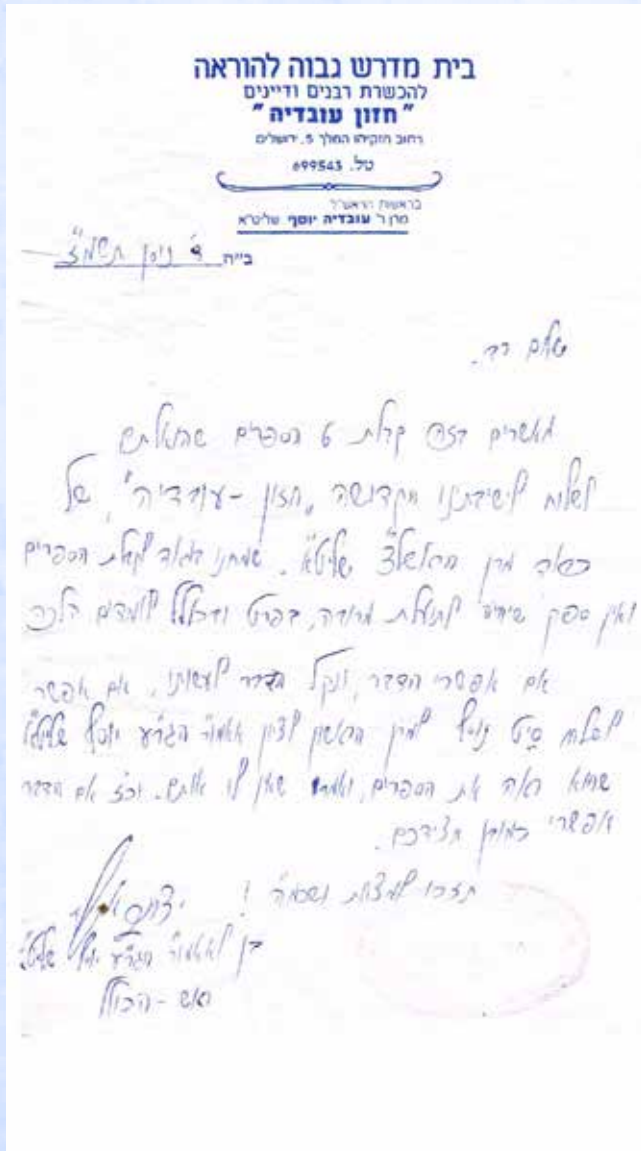 בית מדרש גבוה להוראה
להכשרת רבנים ודיינים
"חזון עובדיה"
רחוב חזקיהו המלך 5, ירושלים
טל. 699543
בראשות הראש"ל
מרן ר' עובדיה יוסף שליט"א
ב"ה ד' ניסן תשמ"ז
שלום רב.
מאשרים בזה קבלת 6 הספרים שהואלתם
לשלוח לישיבתנו הקדושה "חזון-עובדיה", של
מרן הראשל"צ שליט"א. שמחנו מאוד לקבלת הספרים
ואין ספק שיהיו לתועלת מרובה, בפרט ובכלל לומדים הלכה
אם אפשרי הדבר, ונקל הדבר לעשותו, אם אפשר
לשלוח סיט נוסף למרן הראשון לציון אאמו"ר הגר"ע יוסף שליט"א
שהוא ראה את הספרים, ואמר שאין לו אותם. וכ"ז אם הדבר
אפשרי כמובן מצידכם.
תזכו למצוות ושכמ"ה!
בן לאאמו"ר הגר"ע יוסף שליט"א
ראש-הכולל